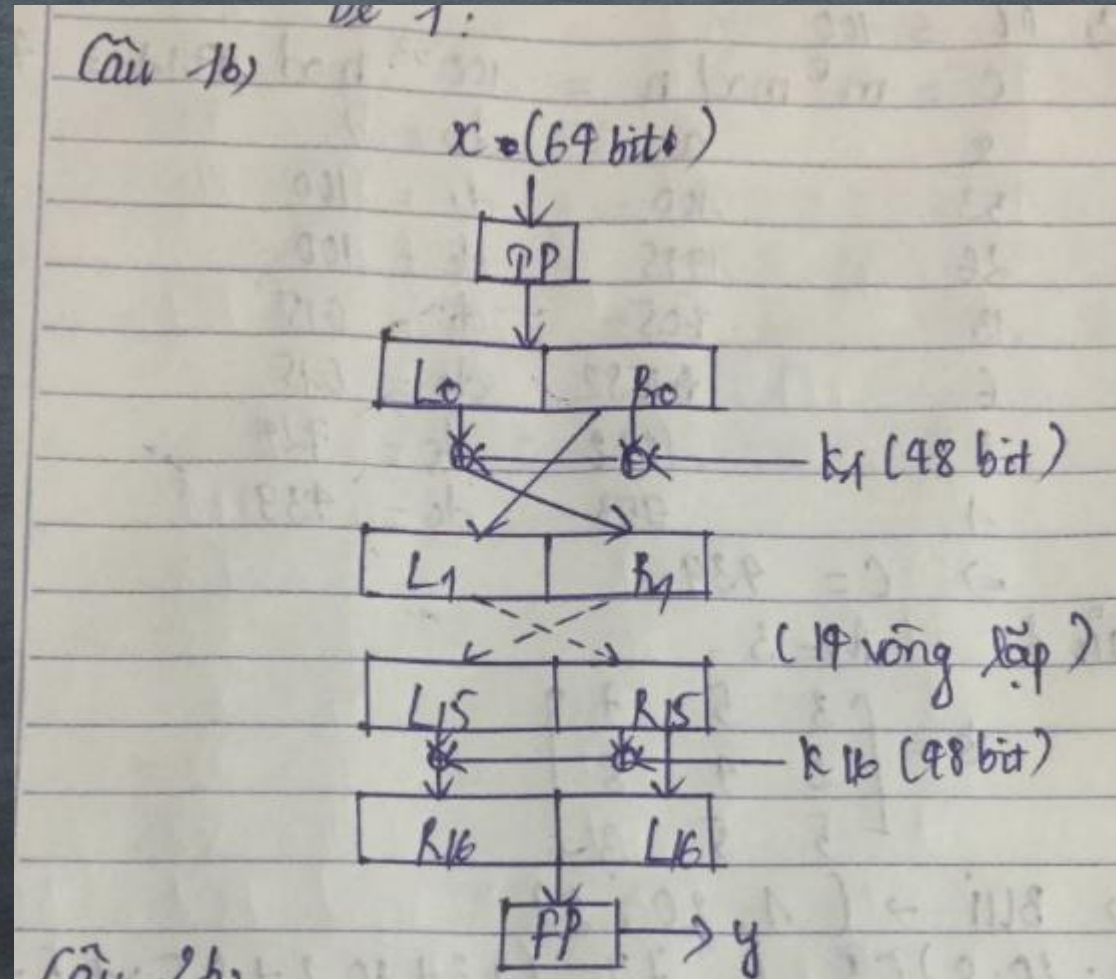 Đề 1:
Câu 1b)
x (64 bit)
IP
L0 R0
k1 (48 bit)
L1 R1
(14 vòng lặp)
L15 R15
k16 (48 bit)
R16 L16
FP → y
Câu 2b)